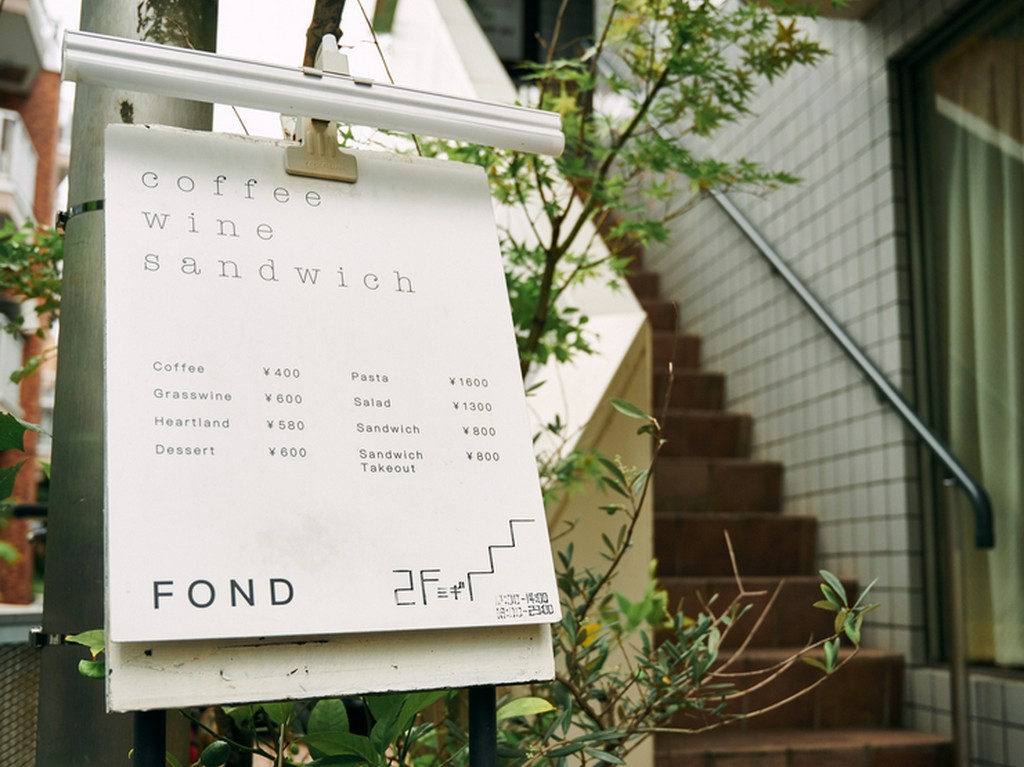 coffee
wine
sandwich
Coffee ¥400
Grasswine ¥600
Heartland ¥580
Dessert ¥600
Pasta ¥1600
Salad ¥1300
Sandwich ¥800
Sandwich Takeout ¥800
FOND
2F